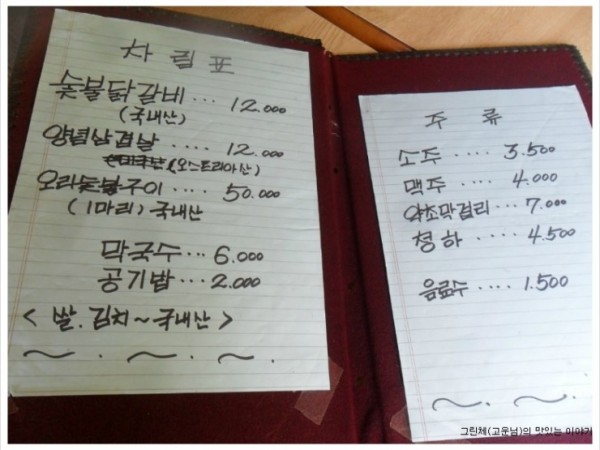 차림표
숯불닭갈비 ... 12.000
(국내산)
양념삼겹살 .... 12.000
(오스트리아산)
오리숯불구이 .... 50.000
(1마리) 국내산
막국수 ... 6.000
공기밥 ... 2.000
< 쌀.김치~국내산 >
~ . ~ . ~ .
주 류
소주 .... 3.500
맥주 .... 4.000
약초막걸리 ... 7.000
청하 ..... 4.500
음료수 .... 1.500
~ . ~ .
그린체(고운님)의 맛있는 이야기